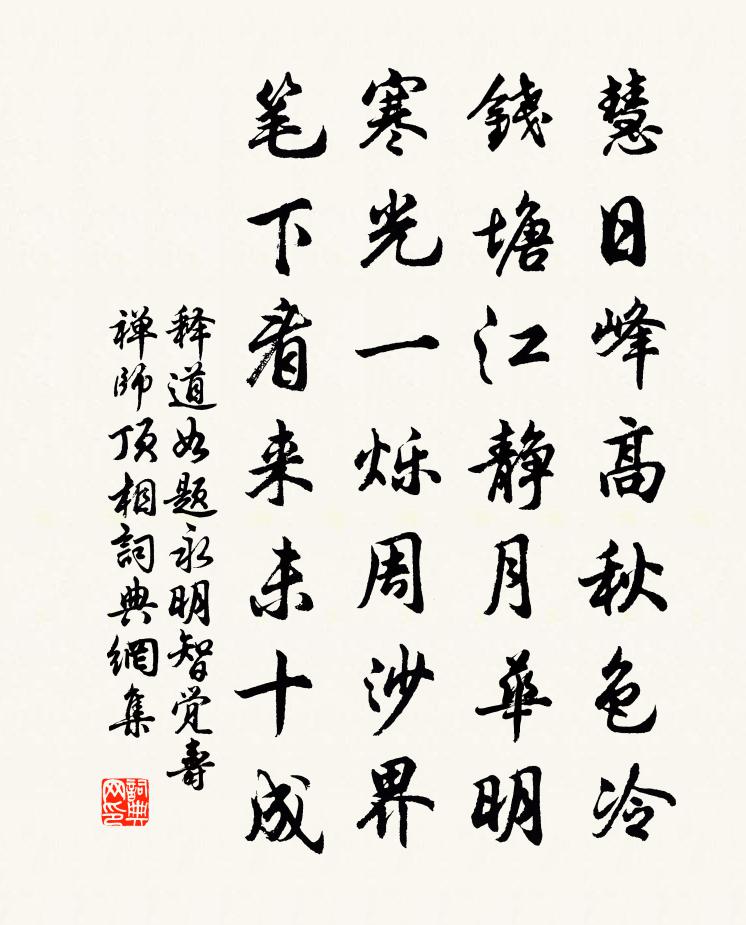 慧日峰高秋色冷
錢塘江静月華明
寒光一烁周沙界
笔下看来未十成
释道如题永明智觉寿
禅師顶相詞典網集
詞典网印